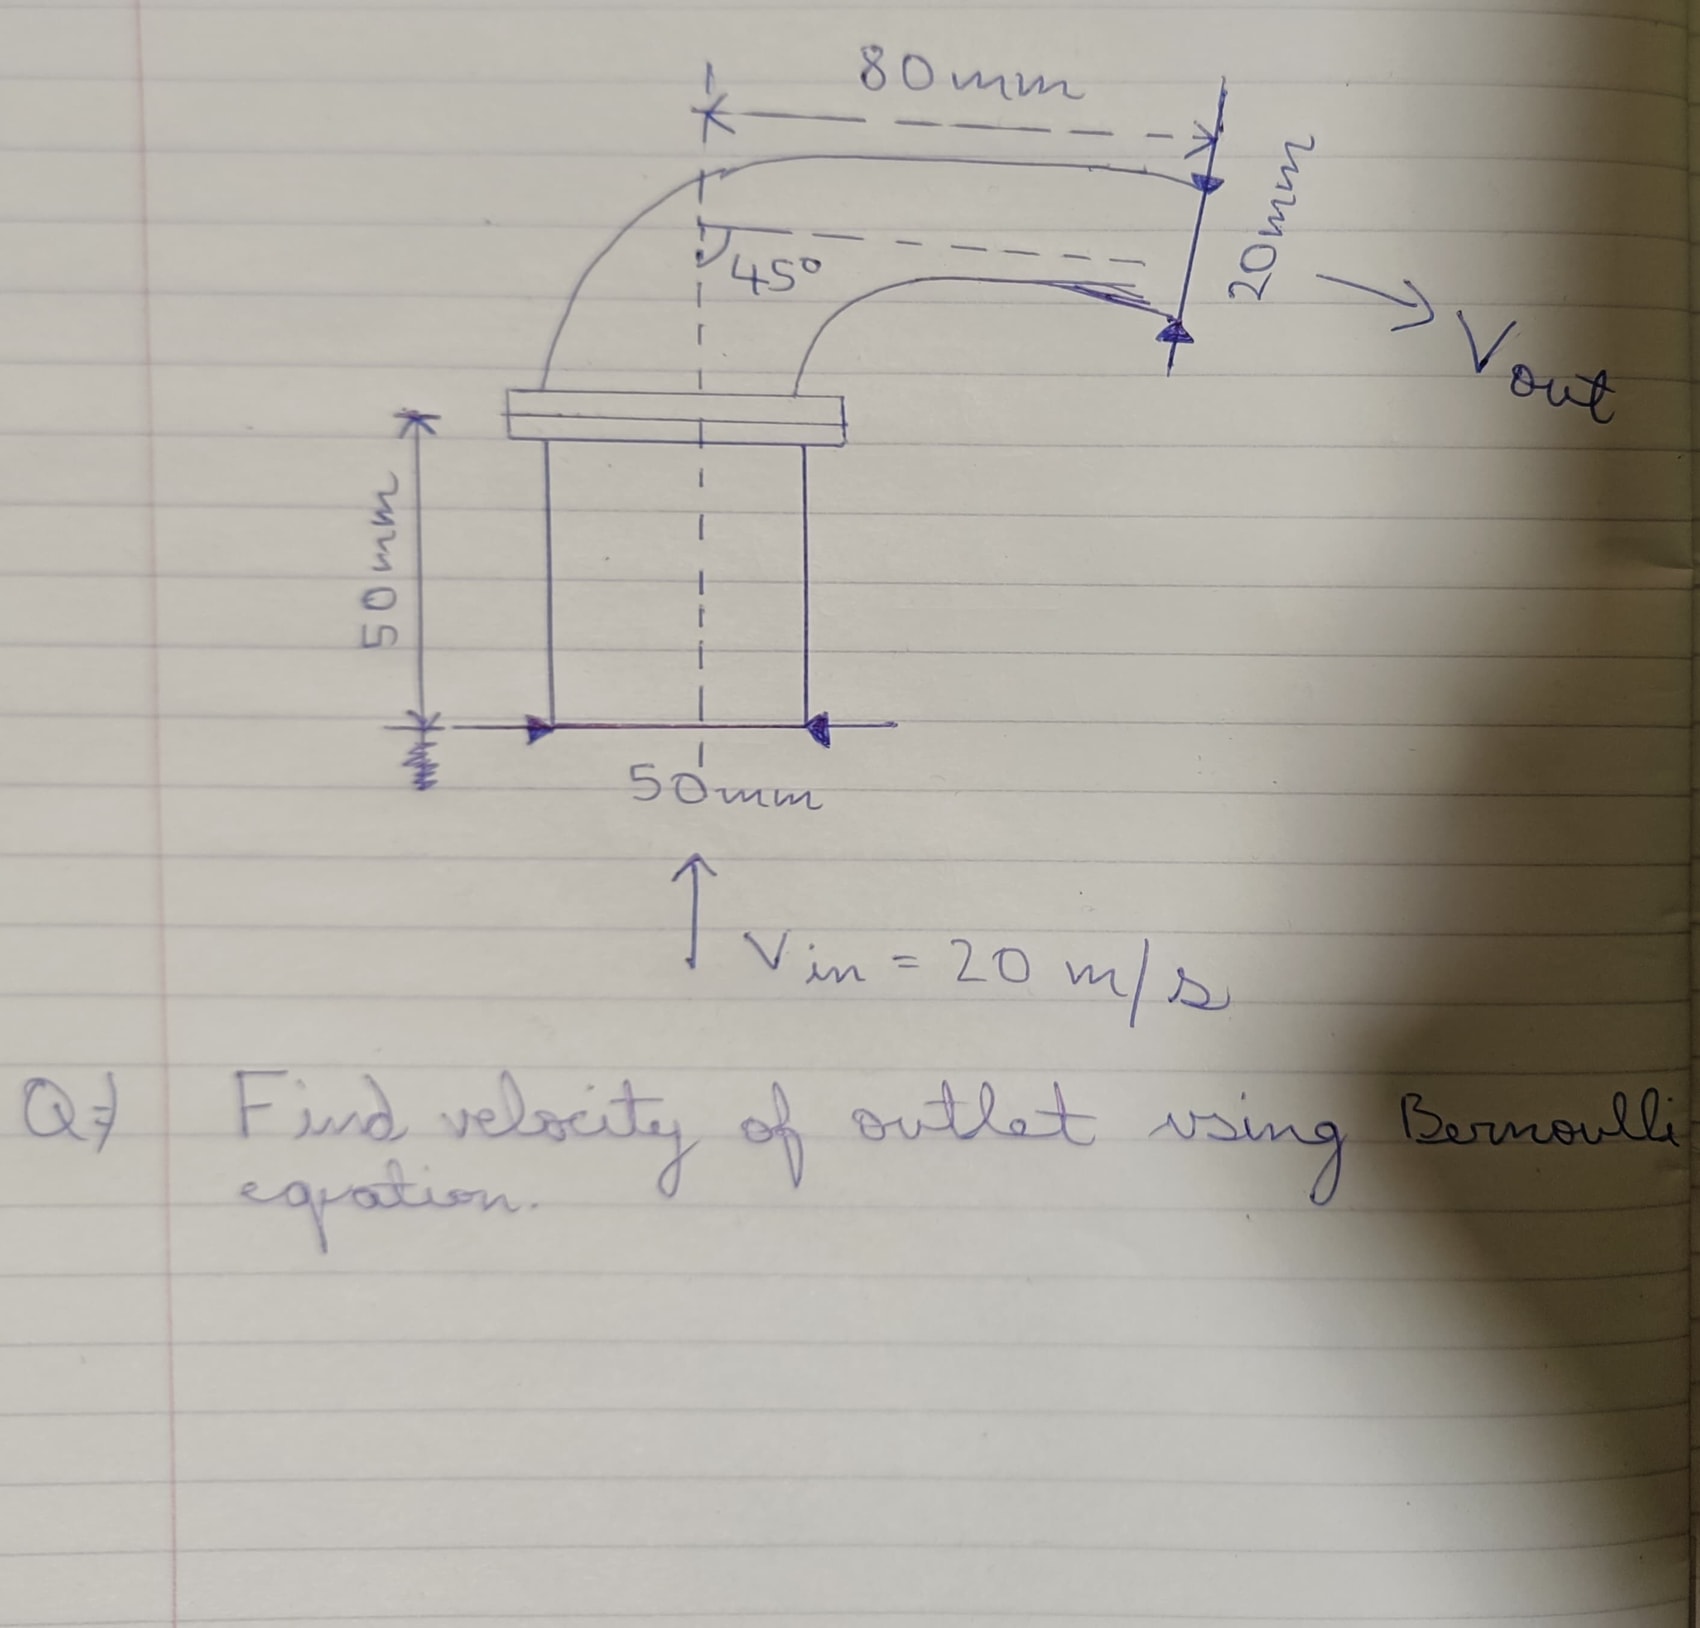 80mm
20mm
45°
Vout
50mm
50mm
Vin = 20 m/s
Q⇒ Find velocity of outlet using Bernoulli
equation.